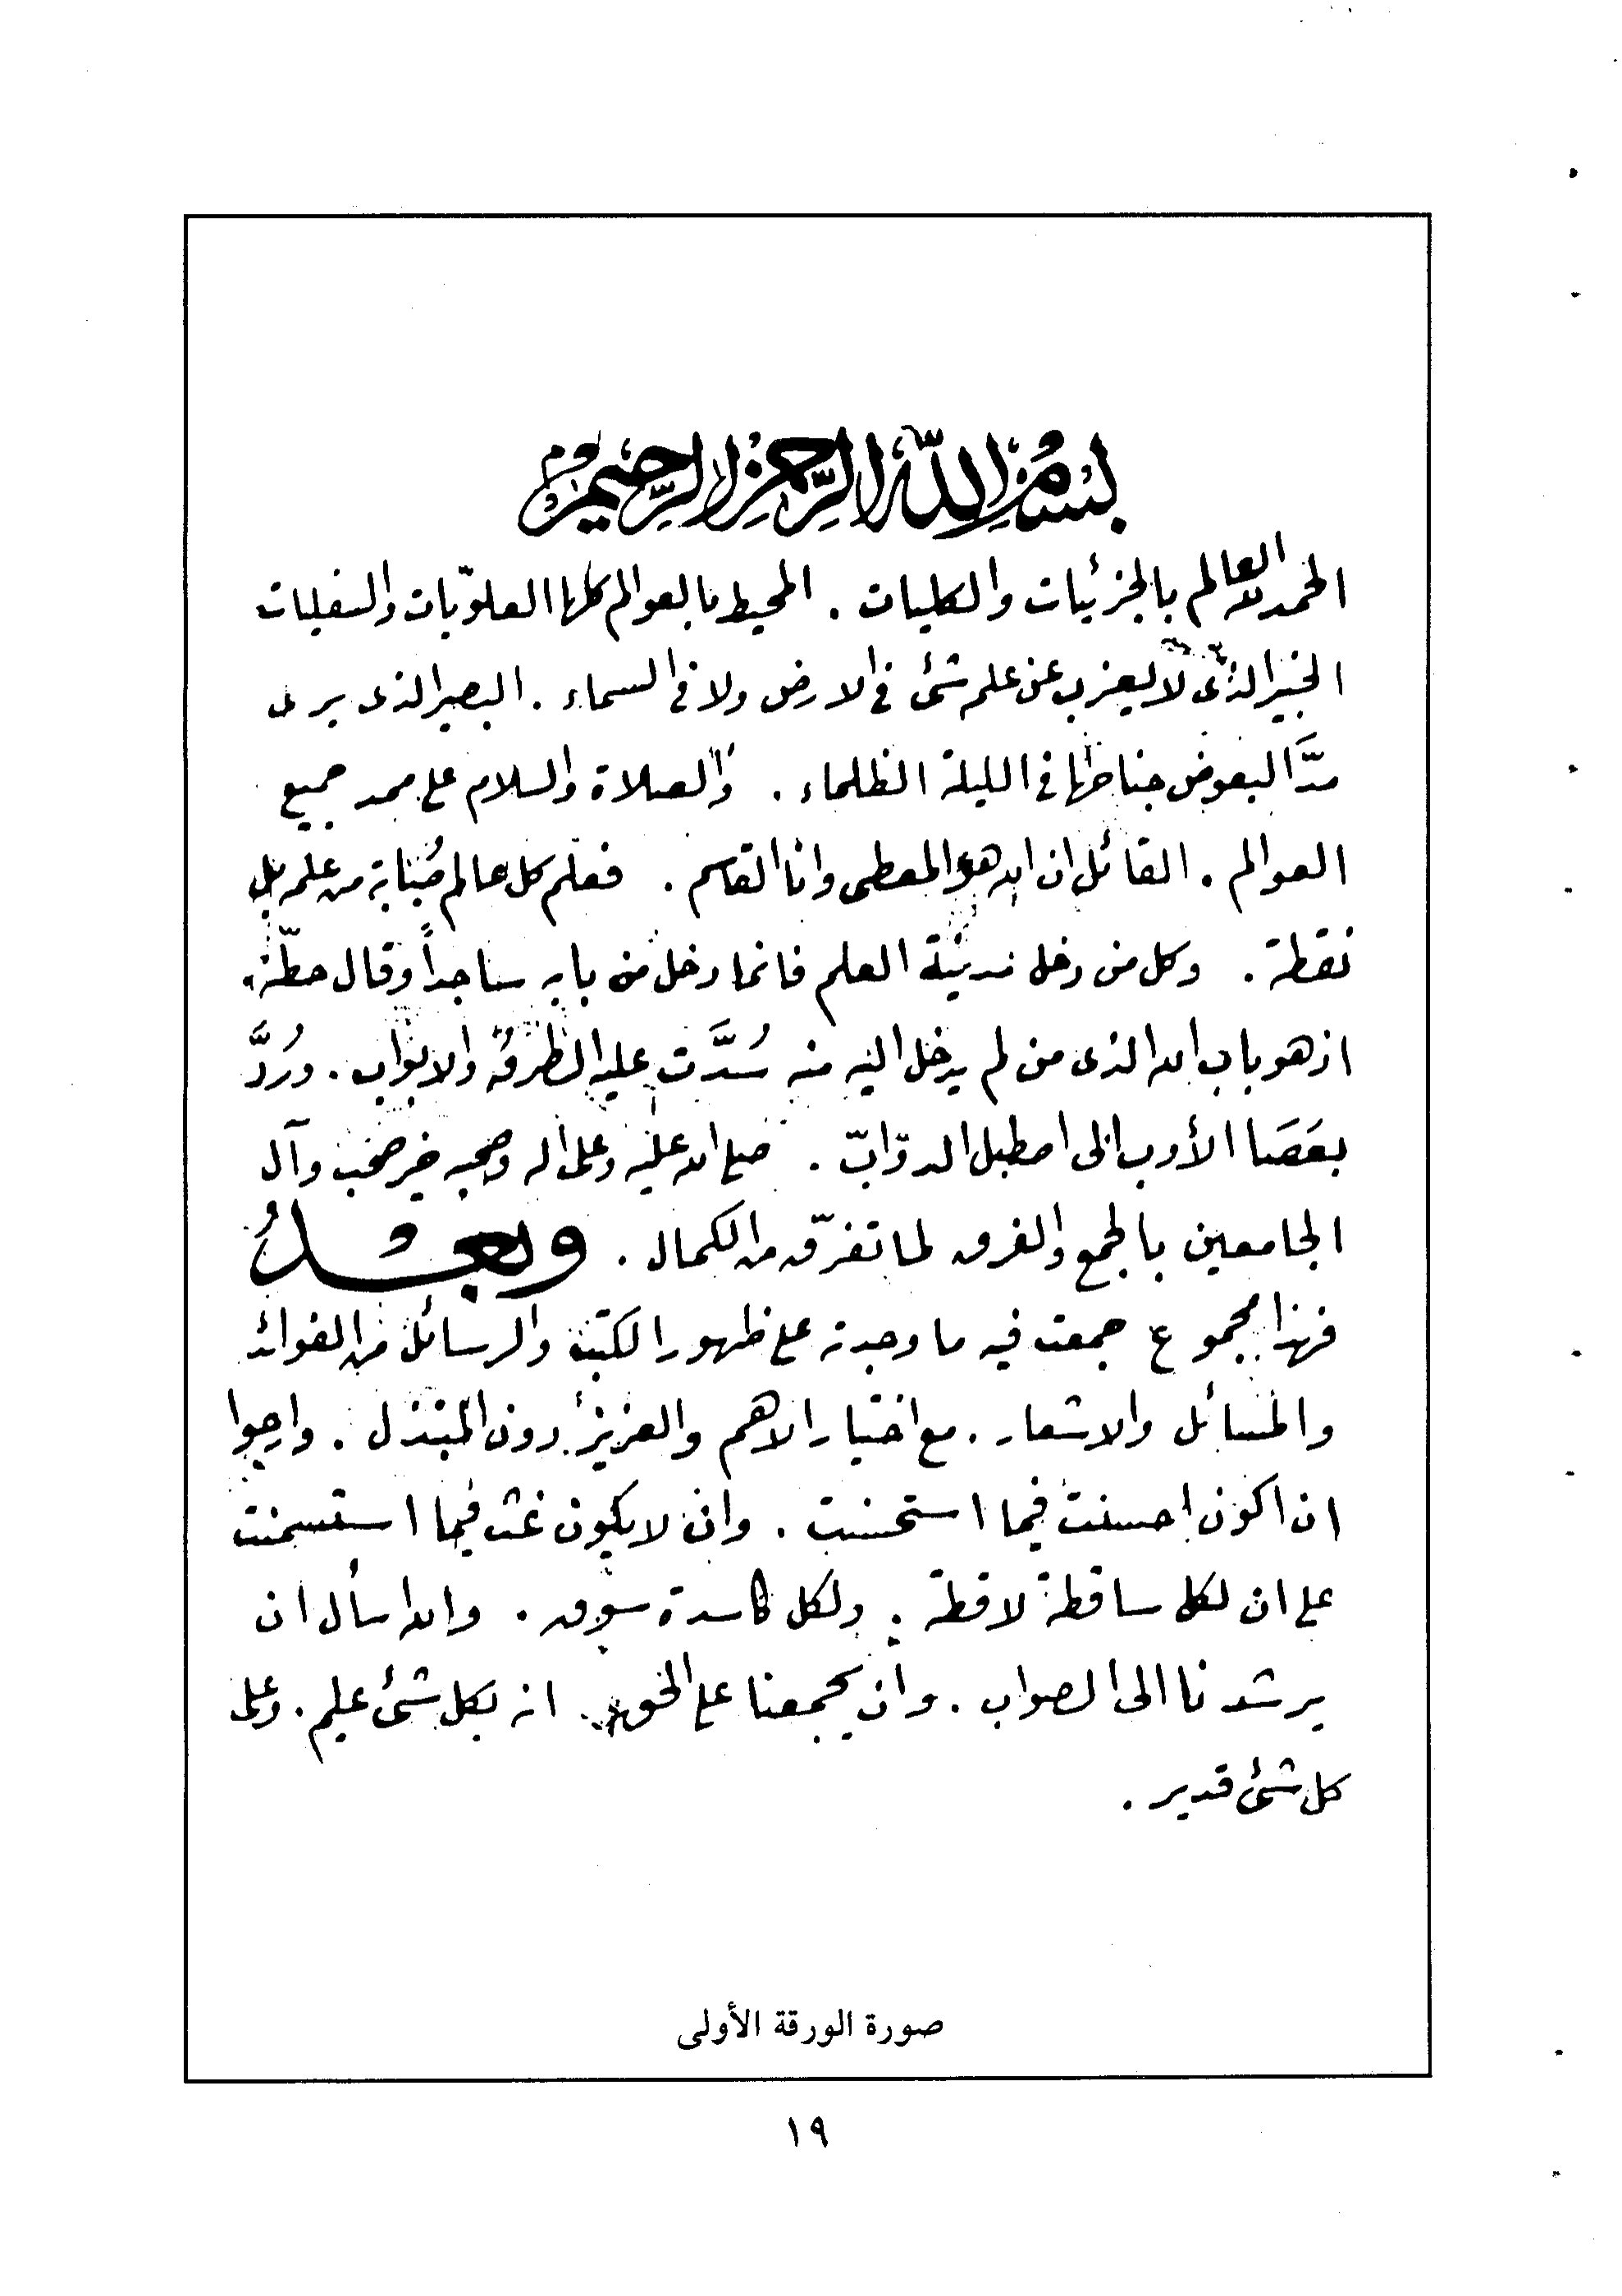 بسم الله الرحمن الرحيم
الحمد لله العالم بالجزئيات والكليات . المحيط بالعوالم كلها العلويّات والسفليات
الخبير الذى لا يعزب عن علم شئ فى الارض ولا فى السماء . البصير الذى يرى
مدَّ البعوض جناحها فى الليلة الظلماء . والصلاة والسلام على ممد جميع
العوالم . القائل ان الله هو المعطى وانا القاسم . فعلم كل عالم صُبابة من علمه بل
نقطة . وكل من دخل مدينة العلم فانما دخل من بابه ساجداً وقال حطّة .
اذ هو باب الله الذى من لم يدخل اليه منه سُدَّت عليه الطرق والابواب . ورُدَّ
بعَصَا الأدب الى اصطبل الدوّابّ . صلى الله عليه وعلى اله وصحبه خير صحب وآل
الجامعين بالجمع والفرق لما تفرّق من الكمال . وبعدُ
فهذا مجموع جمعت فيه ما وجدته على ظهور الكتب والرسائل من الفوائد
والمسائل والاشعار . مع اختيار الاهم والعزيز دون المبتذل . وارجوا
ان اكون احسنت فيما استحسنت . وان لا يكون غث فيما استسمنت
على ان لكل ساقطة لاقطة . ولكل كاسدة سوق . والله اسأل ان
يرشدنا الى الصواب . وان يجمعنا على الحق . انه بكل شئ عليم . وعلى
كل شئ قدير .
صورة الورقة الأولى
١٩